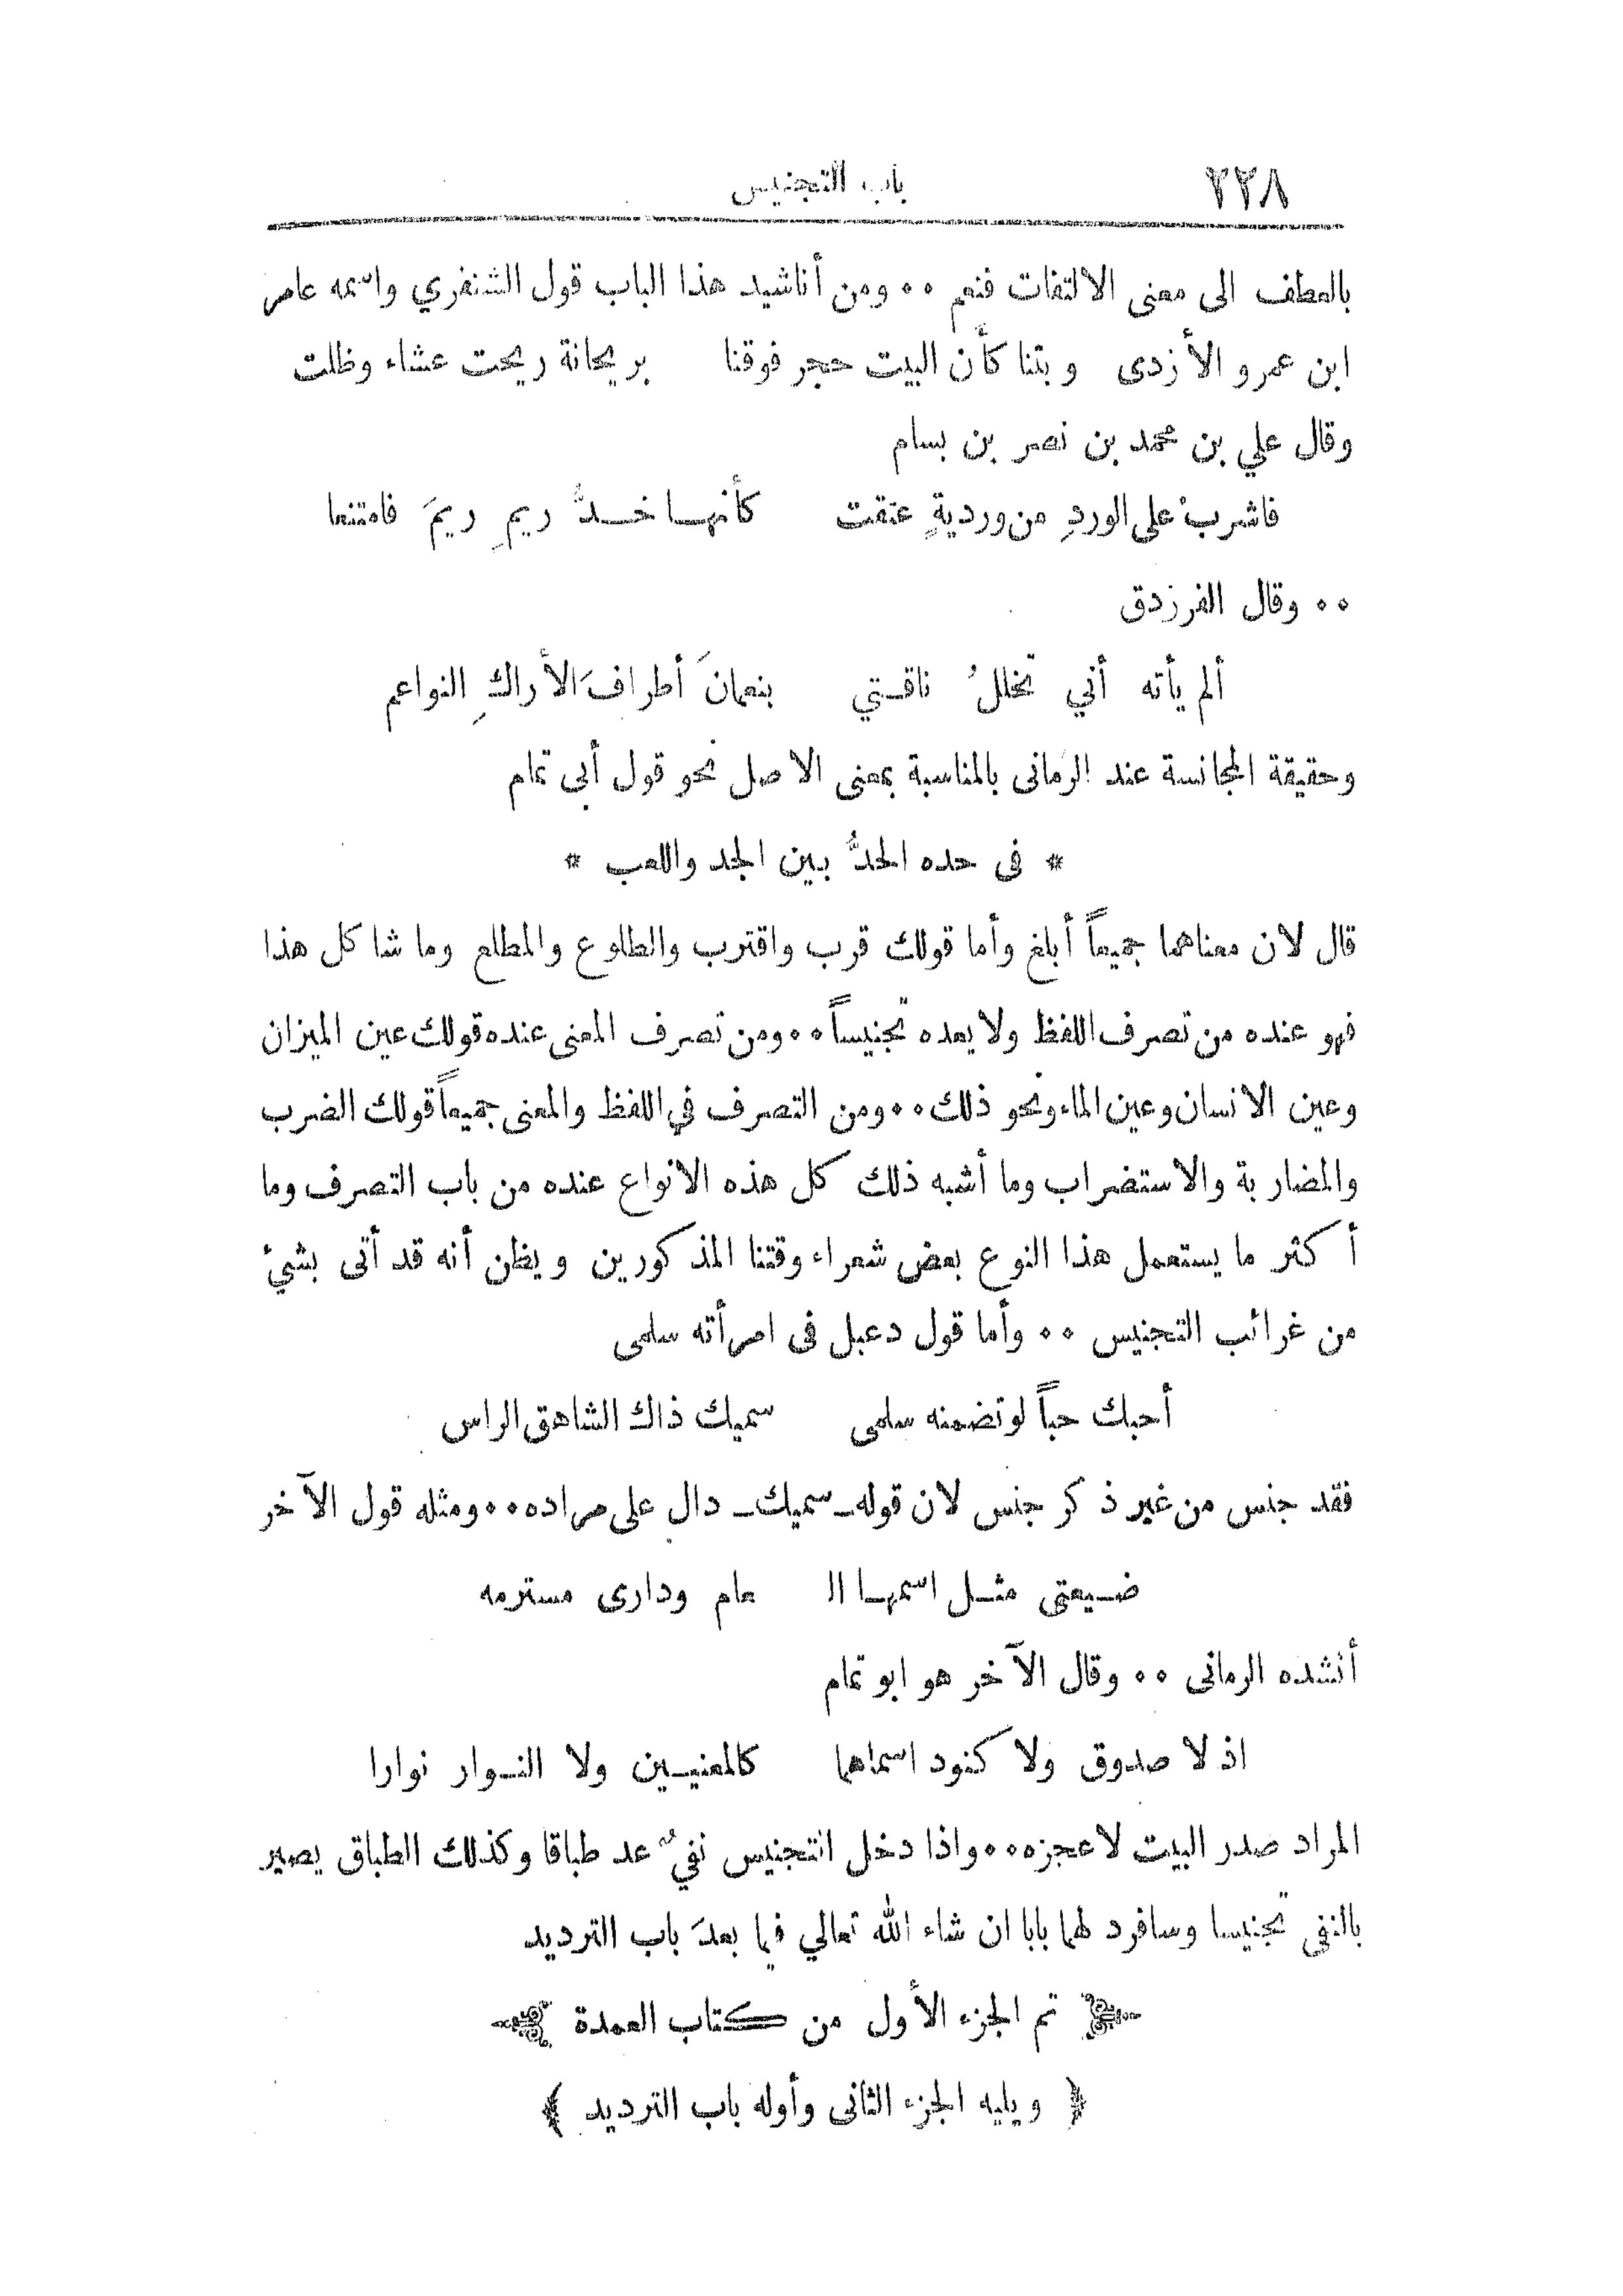 ٢٢٨ باب التجنيس
بالعطف الى معنى الالتفات فنعم ٠٠ ومن أناشيد هذا الباب قول الشنفري واسمه عامر
ابن عمرو الأزدى وبتنا كأن البيت حجر فوقنا بريحانة ريحت عشاء وظلت
وقال علي بن محمد بن نصر بن بسام
فاشربْ على الوردِ من ورديةٍ عتقت كأنها خدُّ ريمٍ ريمَ فامتنعا
٠٠ وقال الفرزدق
ألم يأته أني تخللُ ناقتي بنعمانَ أطرافَ الأراكِ النواعم
وحقيقة المجانسة عند الرمانى بالمناسبة بمعنى الاصل نحو قول أبى تمام
* فى حده الحدُّ بين الجد واللعب *
قال لان معناهما جميعاً أبلغ وأما قولك قرب واقترب والطلوع والمطلع وما شاكل هذا
فهو عنده من تصرف اللفظ ولا يعده تجنيساً ٠٠ ومن تصرف المعنى عنده قولك عين الميزان
وعين الانسان وعين الماء ونحو ذلك ٠٠ ومن التصرف في اللفظ والمعنى جميعاً قولك الضرب
والمضاربة والاستضراب وما أشبه ذلك كل هذه الانواع عنده من باب التصرف وما
أكثر ما يستعمل هذا النوع بعض شعراء وقتنا المذكورين ويظن أنه قد أتى بشيء
من غرائب التجنيس ٠٠ وأما قول دعبل فى امرأته سلمى
أحبك حباً لو تضمنه سلمى سميك ذاك الشاهق الراس
فقد جنس من غير ذكر جنس لان قوله ـ سميك ـ دال على مراده ٠٠ ومثله قول الآخر
ضيعتى مثل اسمها ال عام ودارى مسترمه
أنشده الرمانى ٠٠ وقال الآخر هو ابو تمام
اذ لا صدوق ولا كنود اسماهما كالمعنيين ولا النوار نوارا
المراد صدر البيت لا عجزه ٠٠ واذا دخل التجنيس نفيٌ عد طباقا وكذلك الطباق يصير
بالنفى تجنيسا وسافرد لهما بابا ان شاء الله تعالي فيما بعدَ باب الترديد
تم الجزء الأول من كتاب العمدة
﴿ ويليه الجزء الثانى وأوله باب الترديد ﴾